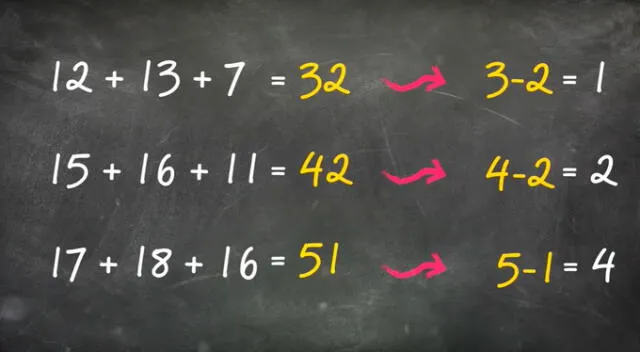 12 + 13 + 7 = 32 3-2 = 1
15 + 16 + 11 = 42 4-2 = 2
17 + 18 + 16 = 51 5-1 = 4